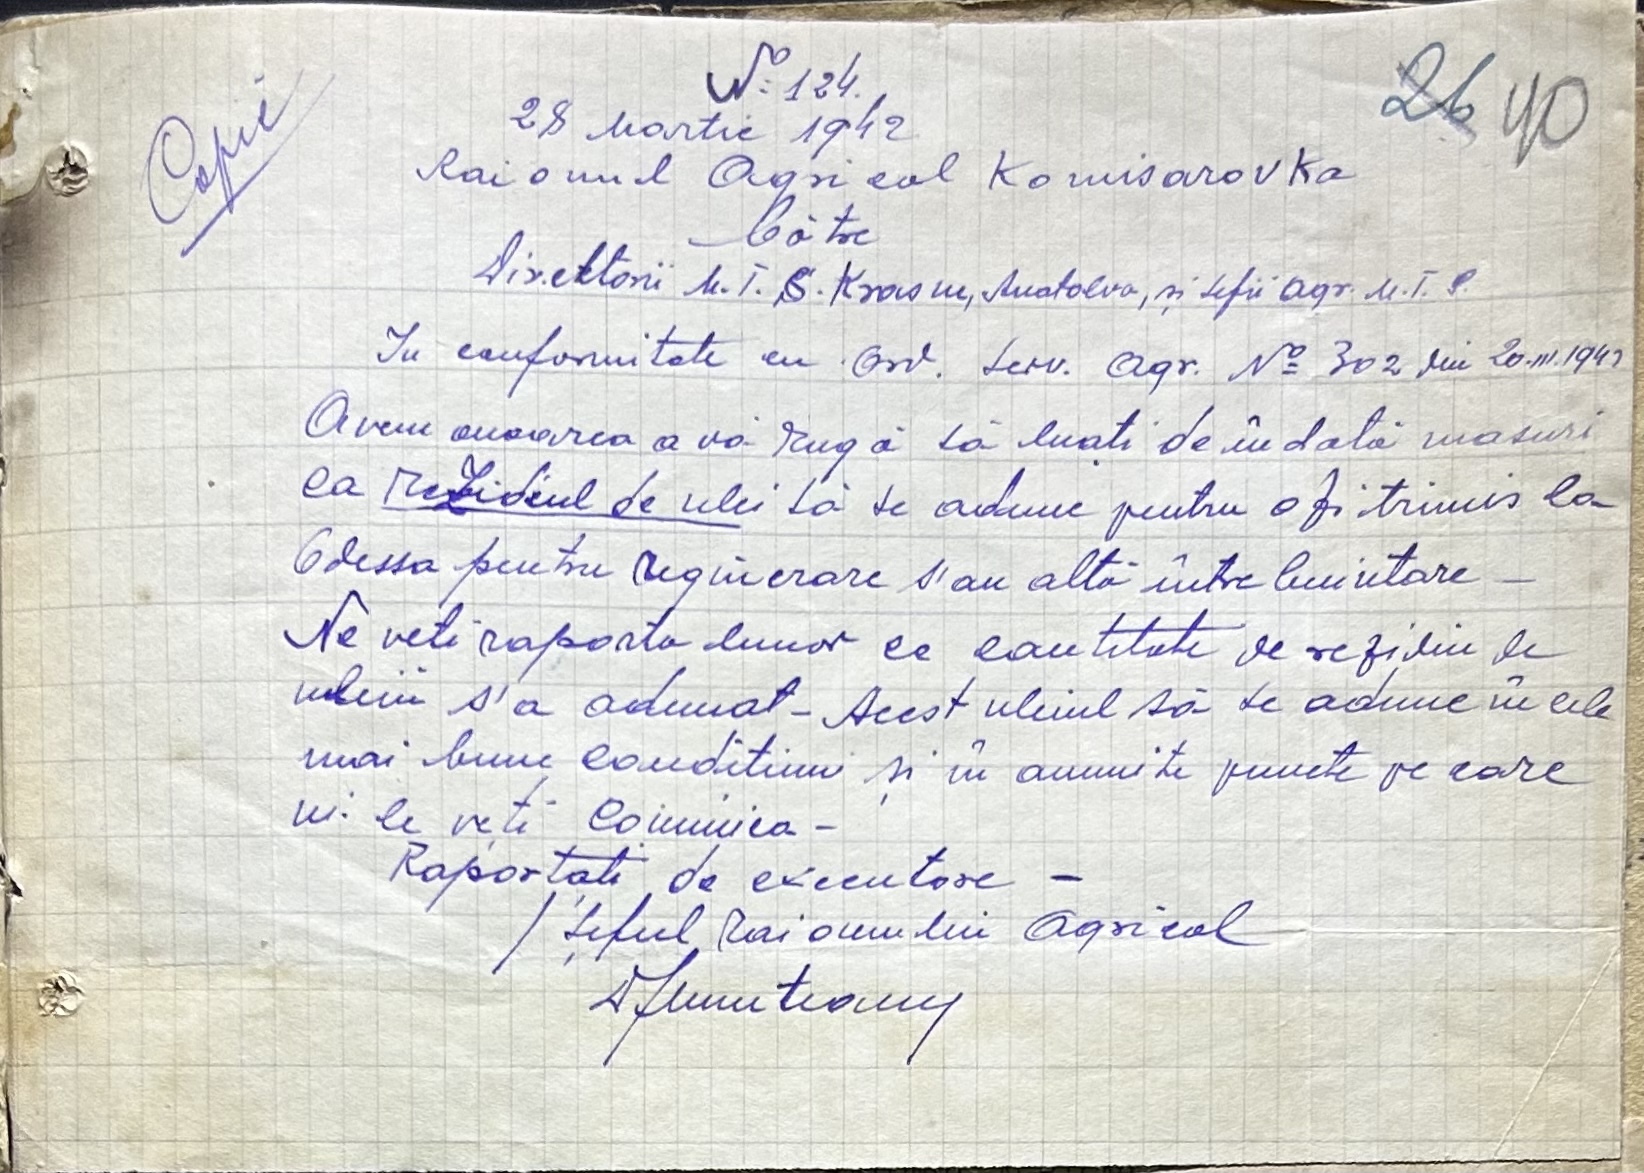 Copie
26 40
No: 124.
28 Martie 1942
Raionul Agricol Komisarovka
Către
Direktorii M.T.S. Krasn, Anatolva, și șefii Agr. M.T.S.
In conformitate cu Ord. Serv. Agr. No 302 din 20.III.1942
Avem onoarea a vă rugă să luați de îndată masuri
ca rezidiul de ulei să se adune pentru a fi trimis la
Odessa pentru reginerare s'au altă întrebuintare -
Ne veti raporta lunar ce cantitate de rezidiu de
uleiu s'a adunat - Acest uleiul să se adune în cele
mai bune conditiuni și în anumite puncte pe care
ni le veți comunica -
Raportați de executare -
/ Șeful Raionului Agricol